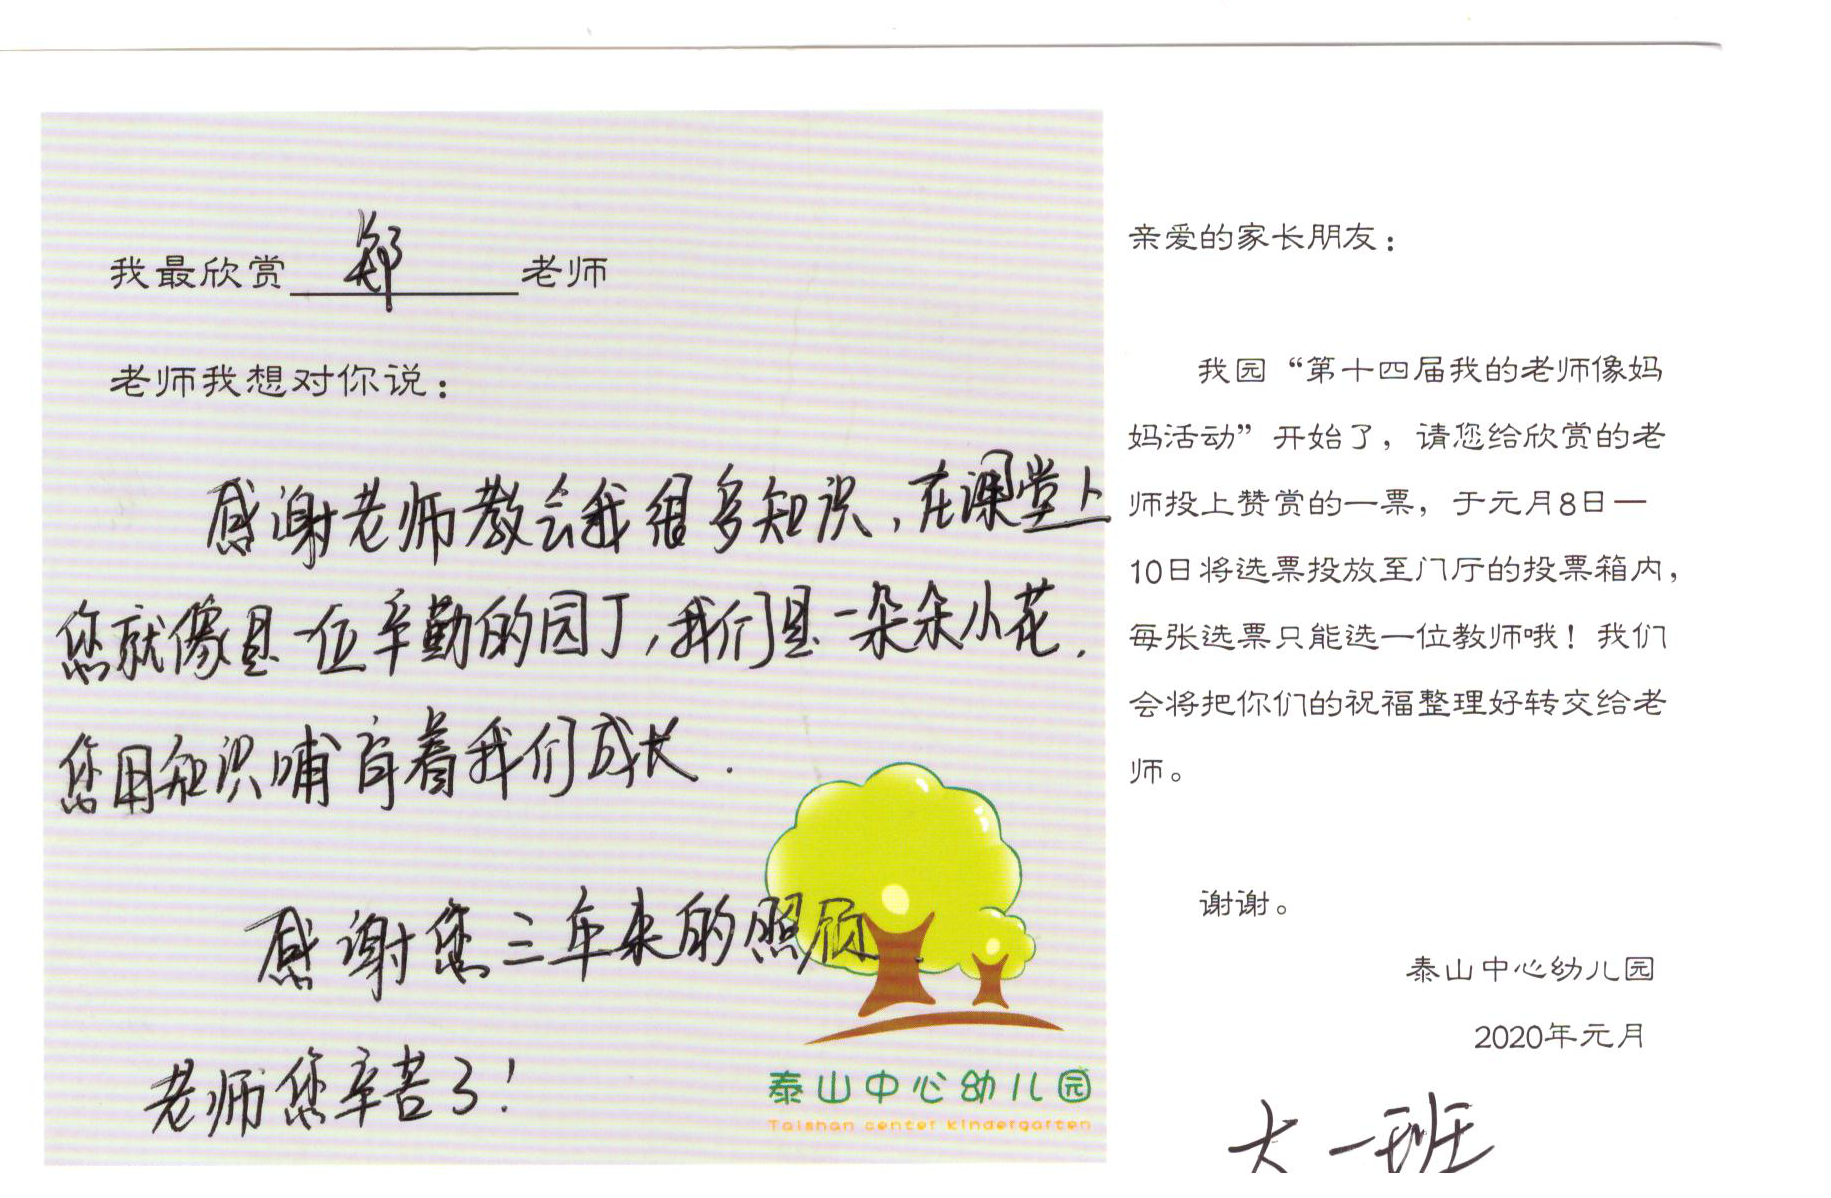 我最欣赏 郑 老师
老师我想对你说：
感谢老师教会我很多知识，在课堂上
您就像是一位辛勤的园丁，我们是一朵朵小花.
您用知识哺育着我们成长.
感谢您三年来的照顾.
老师您辛苦了！
泰山中心幼儿园
Taishan center kindergarten
亲爱的家长朋友：
我园“第十四届我的老师像妈
妈活动”开始了，请您给欣赏的老
师投上赞赏的一票，于元月8日—
10日将选票投放至门厅的投票箱内，
每张选票只能选一位教师哦！我们
会将把你们的祝福整理好转交给老
师。
谢谢。
泰山中心幼儿园
2020年元月
大一班